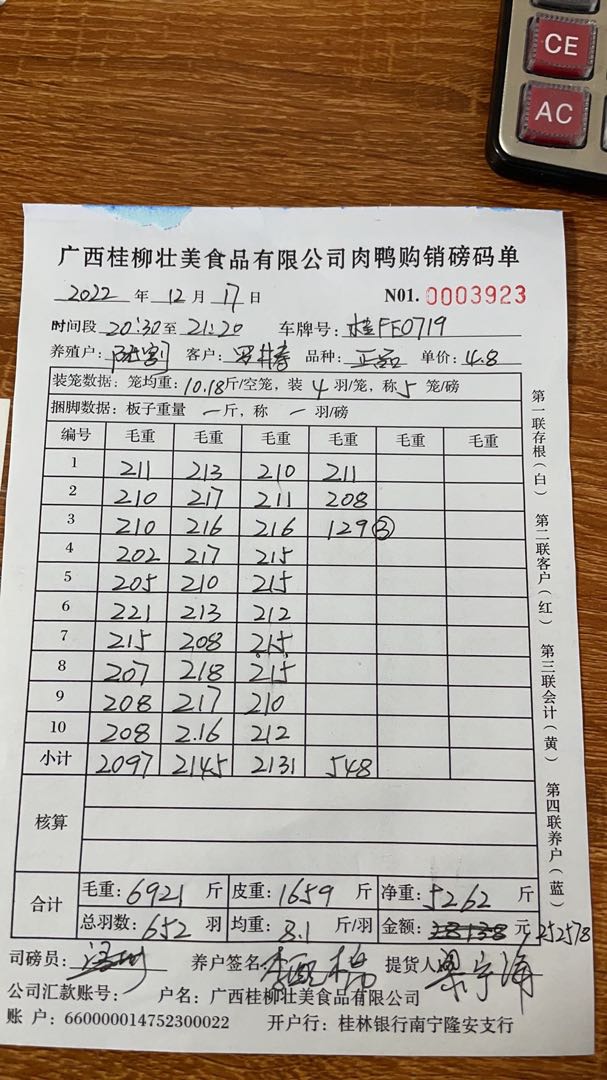 CE
AC
广西桂柳壮美食品有限公司肉鸭购销磅码单
2022 年 12 月 17 日 N01. 0003923
时间段 20:30 至 21:20 车牌号: 桂FF0719
养殖户: 客户: 品种: 正品 单价: 4.8
装笼数据: 笼均重: 10.18 斤/空笼, 装 4 羽/笼, 称 5 笼/磅
捆脚数据: 板子重量 一 斤, 称 一 羽/磅
编号 毛重 毛重 毛重 毛重 毛重 毛重
1 211 213 210 211
2 210 217 211 208
3 210 216 216 129 ③
4 202 217 215
5 205 210 215
6 221 213 212
7 215 208 215
8 207 218 215
9 208 217 210
10 208 2.16 212
小计 2097 2145 2131 548
核算
合计 毛重: 6921 斤 皮重: 1659 斤 净重: 5262 斤
总羽数: 652 羽 均重: 8.1 斤/羽 金额: 元 252578
司磅员: 养户签名 提货人
公司汇款账号: 户名: 广西桂柳壮美食品有限公司
账 户: 660000014752300022 开户行: 桂林银行南宁隆安支行
第一联存根(白) 第二联客户(红) 第三联会计(黄) 第四联养户(蓝)